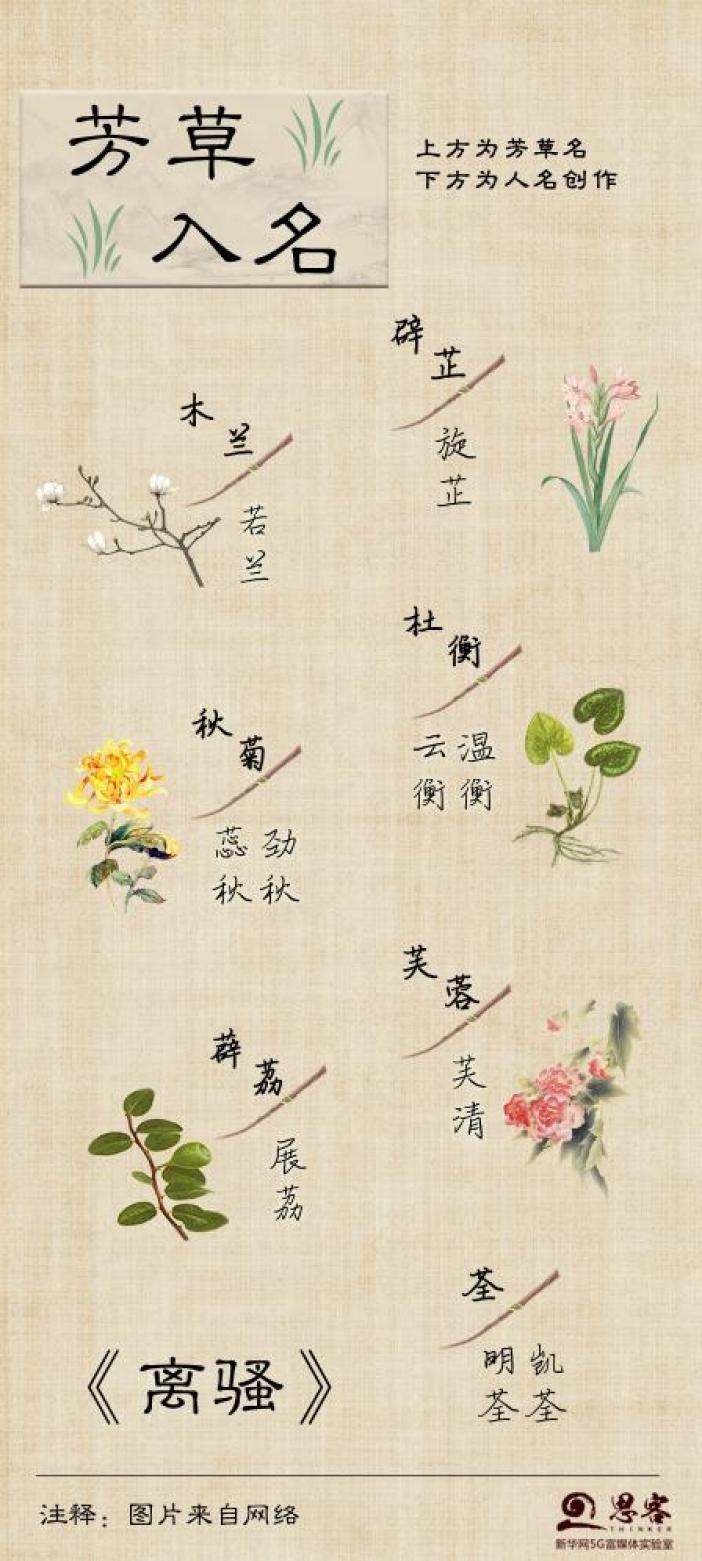 芳草
入名
上方为芳草名
下方为人名创作
辟芷
旋芷
木兰
若兰
杜衡
云衡
温衡
秋菊
蕊秋
劲秋
芙蓉
芙清
薜荔
展荔
荃
明荃
凯荃
《离骚》
注释：图片来自网络
思客
THINKER
新华网5G富媒体实验室